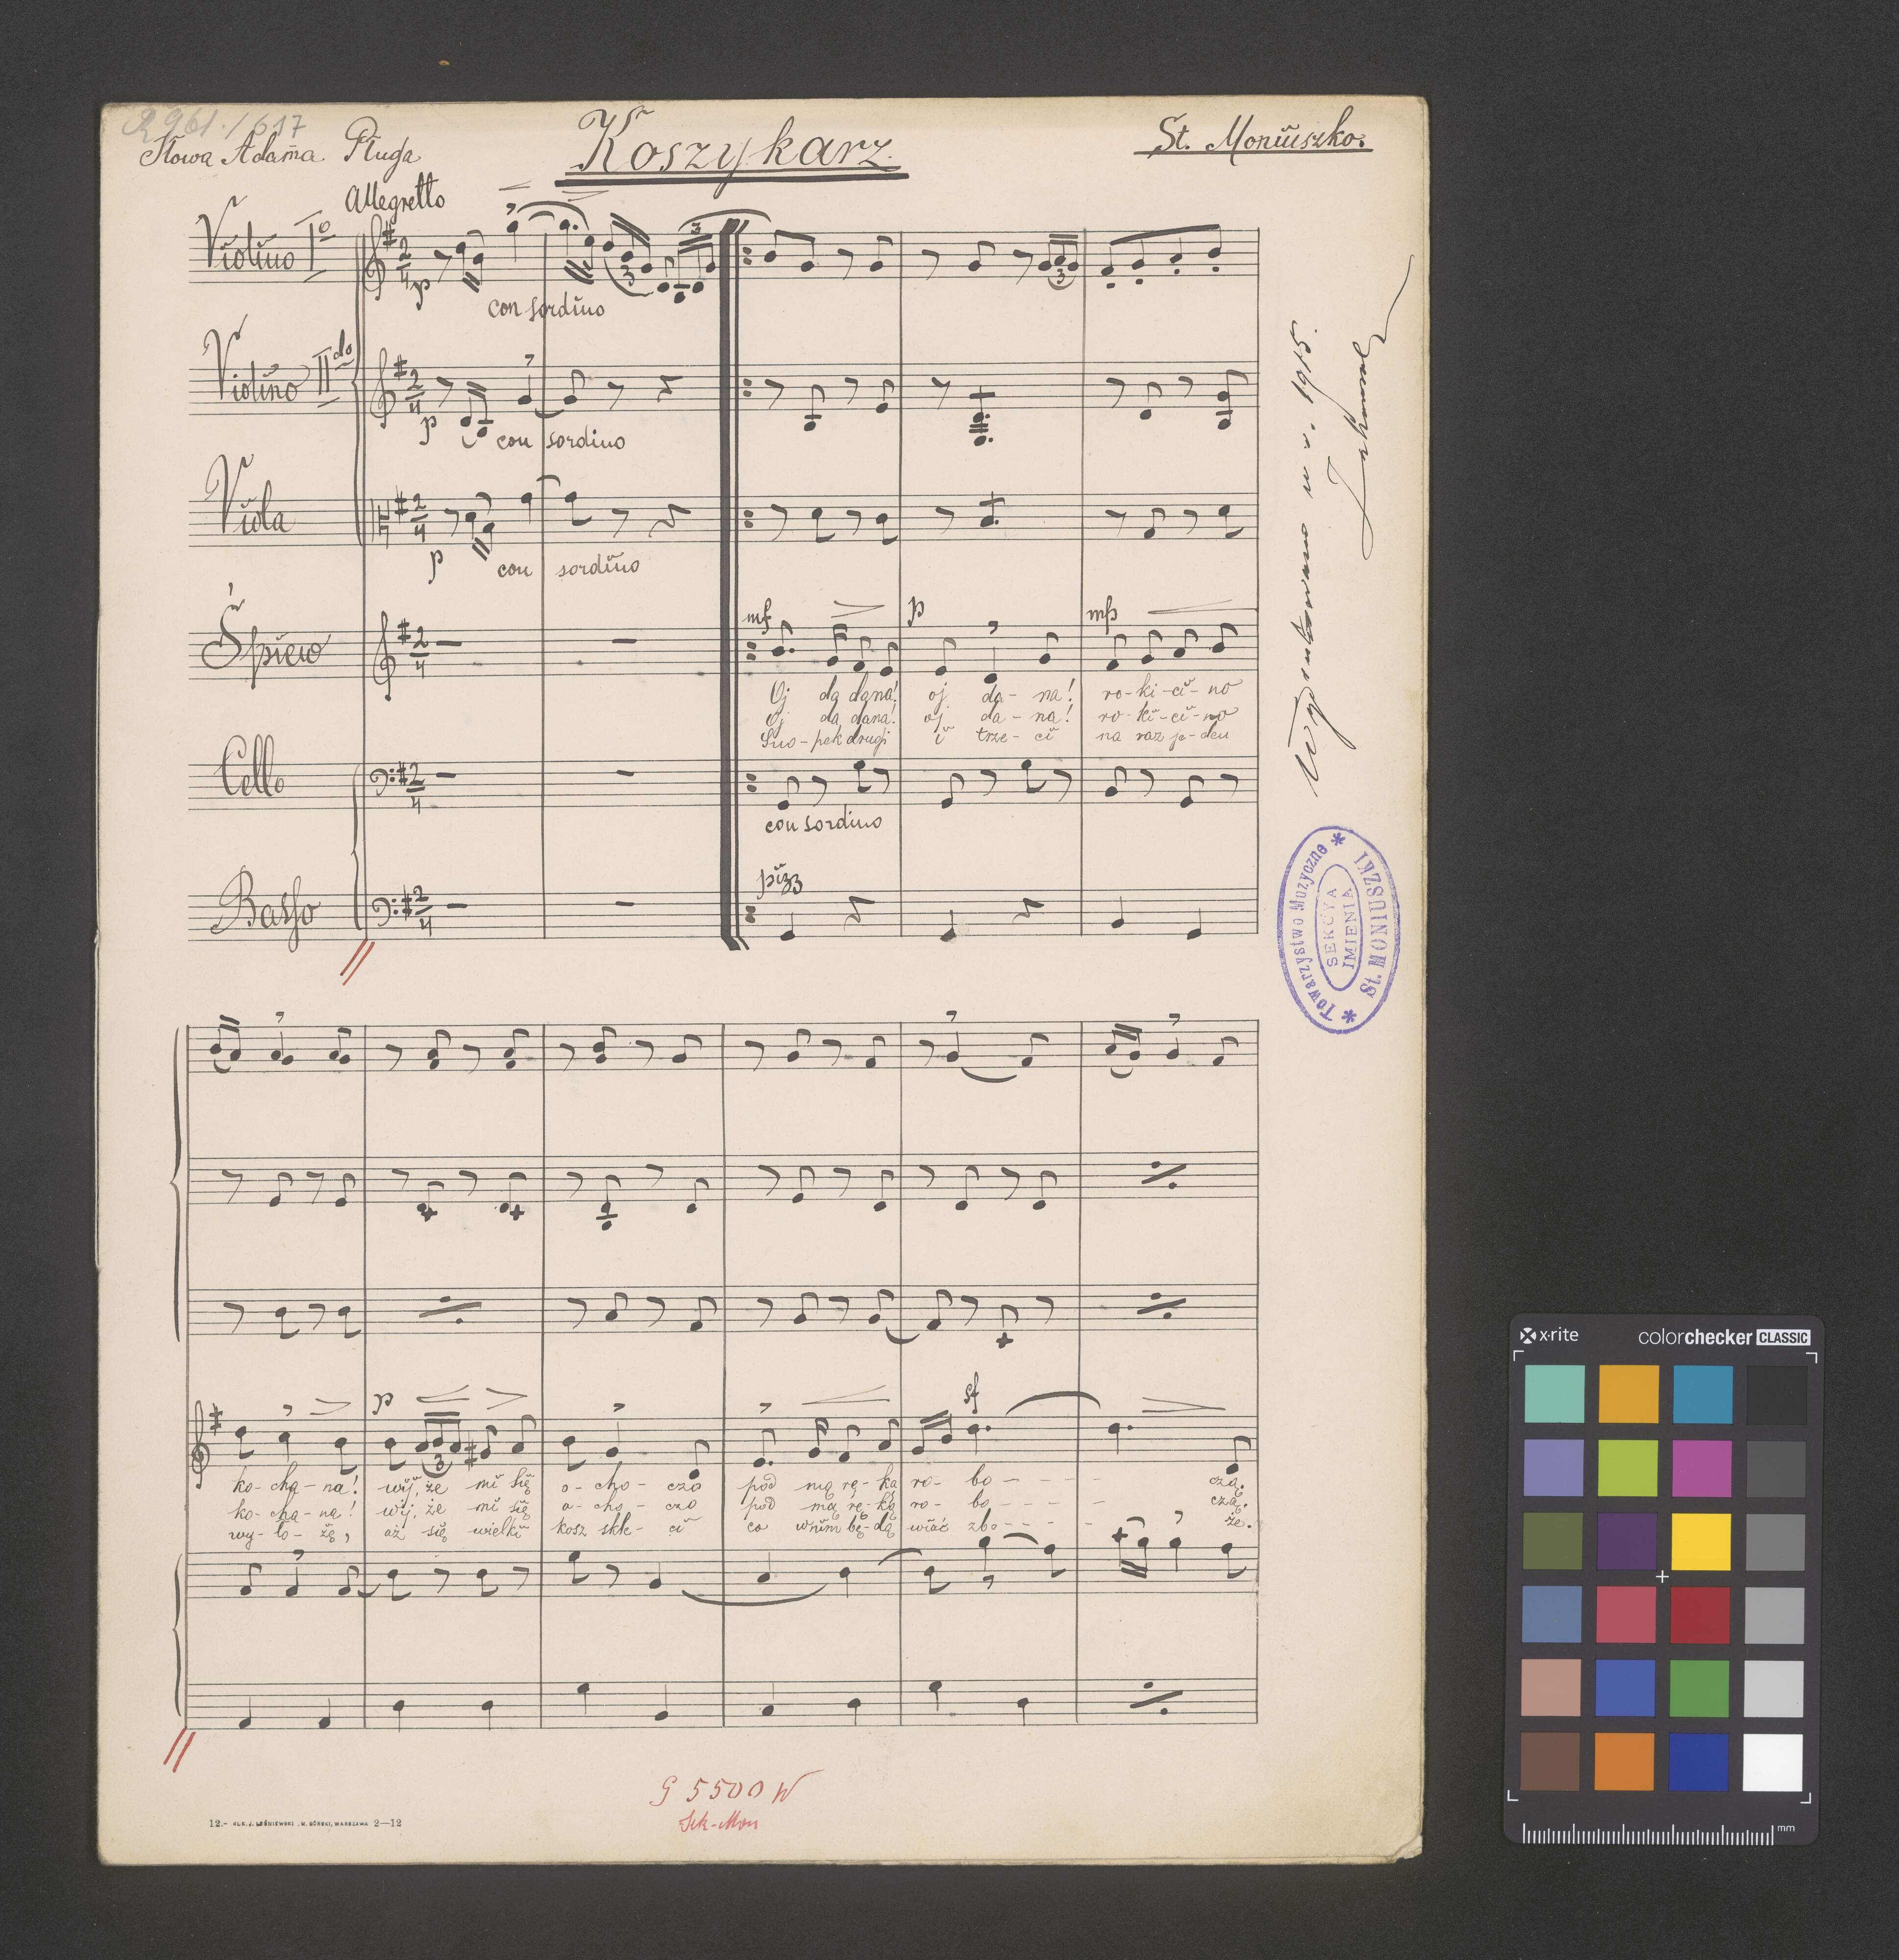 R 961./617
Słowa Adama Pługa
Koszykarz.
St. Moniuszko.
Allegretto
Violino Iº
p
3
3
con sordino
3
Violino IIdo
p
con sordino
Viola
p
con sordino
Śpiew
mf
p
mp
Oj da dana! oj da - na! ro - ki - ci - no
Oj da dana! oj da - na! ro - ki - ci - no
Sno - pek drugi i trze - ci na raz je - den
Cello
con sordino
pizz
Basso
w r. 1915.
* Towarzystwo Muzyczne *
SEKCYA
IMIENIA
St. MONIUSZKI
p
sf
3
ko - cha - na! wij, że mi się o - cho - czo pod mą rę - ką ro - bo - - - - czą.
ko - cha - na! wij, że mi się o - cho - czo pod mą rę - ką ro - bo - - - - czą.
wy - ło - żę, aż się wielki kosz skle - ci co w nim bę - dą wiać zbo - - - - że.
G 5500 W
Sek - Mon
12.- SKŁ. J. LEŚNIEWSKI . M. GÓRSKI, WARSZAWA 2—12
x-rite
colorchecker CLASSIC
mm